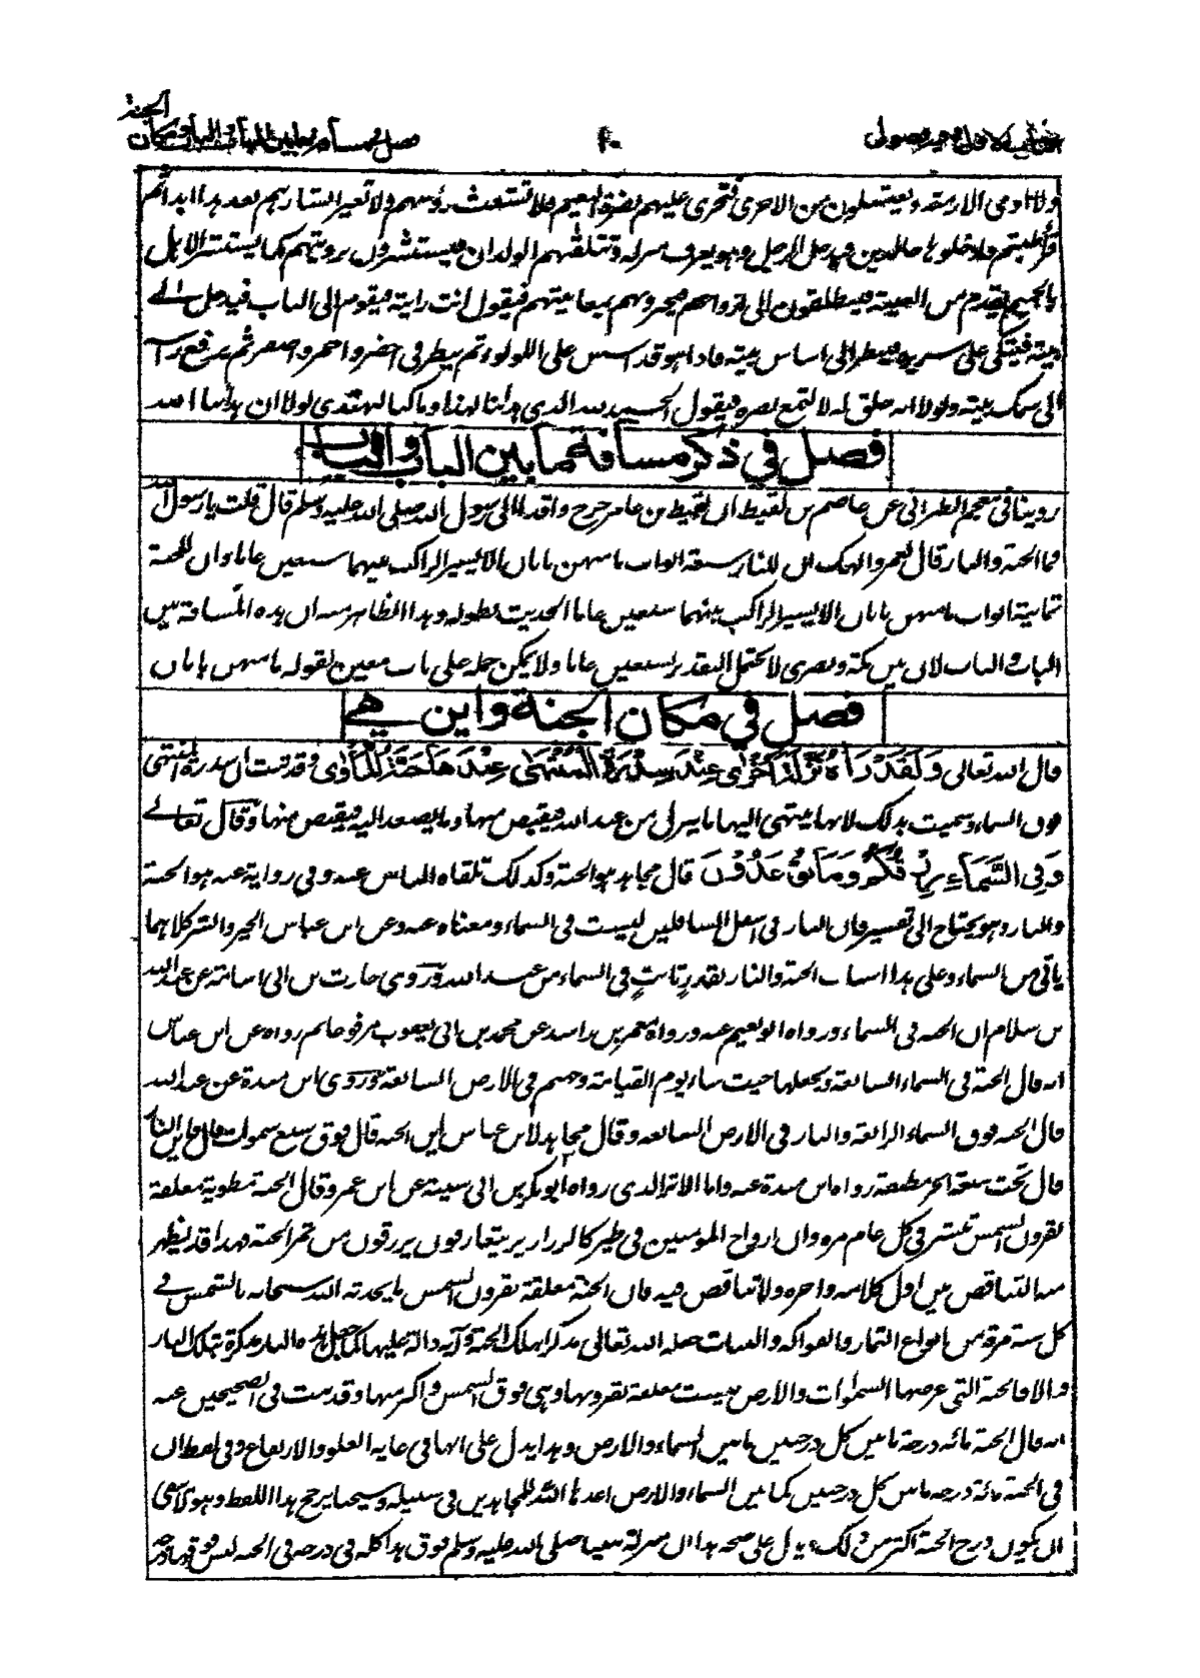 الجنة
فصل في مسافة ما بين الباب والباب ومكان
٤٠
ولا اذى الا ... ويغتسلون من الاخرى فتجرى عليهم نضرة النعيم فلا تشعث رؤسهم ولا تغير ابشارهم بعد هذا ابدا ثم
قرأ طبتم فادخلوها خالدين فيدخل الرجل وهو يعرف منزله وتتلقاهم الولدان فيستبشرون برؤيتهم كما يستبشر الاهل
بالحميم يقدم من الغيبة فينطلقون الى ازواجهم فيخبرونهم بمعاينتهم فيقول انت رايته فيقوم الى الباب فيدخل الى
بيته فيتكى على سريره فينظر الى اساس بيته فاذا هو قد اسس على اللولو ثم ينظر فى اخضر واحمر واصفر ثم يرفع راسه
الى سمك بيته فلولا انه خلق له لالتمع بصره فيقول الحمد لله الذى هدانا لهذا وما كنا لنهتدى لولا ان هدانا الله
فصل في ذكر مسافة ما بين الباب والباب
روينا فى معجم الطبرانى عن عاصم بن لقيط ان لقيط بن عامر خرج وافدا الى رسول الله صلى الله عليه وسلم قال قلت يا رسول الله
فما الجنة والنار قال لعمر والهك ان للنار سبعة ابواب ما منهن بابان الا يسير الراكب بينهما سبعين عاما وان للجنة
ثمانية ابواب ما منهن بابان الا يسير الراكب بينهما سبعين عاما الحديث بطوله وهذا الظاهر منه ان هذه المسافة بين
الباب والباب لان بين مكة وبصرى لا يحتمل التقدير بسبعين عاما ولا يمكن حمله على باب معين لقوله ما منهن بابان
فصل في مكان الجنة واين هي
قال الله تعالى وَلَقَدْ رَآهُ نَزْلَةً أُخْرَى عِنْدَ سِدْرَةِ الْمُنْتَهَى عِنْدَهَا جَنَّةُ الْمَأْوَى وقد ثبت ان سدرة المنتهى
فوق السماء وسميت بذلك لانها ينتهى اليها ما ينزل من عند الله فيقبض منها وما يصعد اليه فيقبض منها وقال تعالى
وَفِى السَّمَاءِ رِزْقُكُمْ وَمَا تُوعَدُونَ قال مجاهد هو الجنة وكذلك تلقاه الناس عنه وفى رواية عنه هو الجنة
والنار وهو يحتاج الى تفسير فان النار فى اسفل السافلين ليست فى السماء ومعناه عنه وعن ابن عباس الخير والشر كلاهما
ياتى من السماء وعلى هذا اسباب الجنة والنار بقدر ثابت فى السماء من عند الله وروى حارث بن ابى اسامة عن عبد الله
بن سلام ان الجنة فى السماء ورواه ابو نعيم عنه ورواه معمر بن راشد عن محمد بن ابى يعقوب مرفوعا ثم رواه عن ابن عباس
انه قال الجنة فى السماء السابعة ويجعلها حيث شاء يوم القيامة وجهنم فى الارض السابعة وروى ابن منده عن عبد الله
قال الجنة فوق السماء الرابعة والنار فى الارض السابعة وقال مجاهد لابن عباس اين الجنة قال فوق سبع سموات قال فاين النار
قال تحت سبعة ابحر مطبقة رواه ابن منده عنه واما الاثر الذى رواه ابو بكر بن ابى شيبة عن ابن عمرو قال الجنة مطوية معلقة
بقرون الشمس تنشر فى كل عام مرة وان ارواح المؤمنين فى طير كالزرازير يتعارفون يرزقون من ثمر الجنة فهذا قد يظهر
منه التناقض بين اول كلامه واخره ولا تناقض فيه فان الجنة معلقة بقرون الشمس ما يحدثه الله سبحانه بالشمس فى
كل سنة مرة من انواع الثمار والفواكه والنبات جعله الله تعالى مذكرا بتلك الجنة وآية دالة عليها كما جعل هذه النار مذكرة بتلك النار
والا فالجنة التى عرضها السموات والارض ليست معلقة بقرونها وهى فوق الشمس واكبر منها وقد ثبت فى الصحيحين عنه
انه قال الجنة مائة درجة ما بين كل درجتين ما بين السماء والارض وهذا يدل على انها فى غاية العلو والارتفاع وفى لفظ ان
فى الجنة مائة درجة ما بين كل درجتين كما بين السماء والارض اعدها الله للمجاهدين فى سبيله وشيخنا يرجح هذا اللفظ وهو لا ينفى
ان يكون درج الجنة اكثر من ذلك ويدل على صحة هذا ان منزلة نبينا صلى الله عليه وسلم فوق هذا كله فى درجة فى الجنة ليس فوقها درجة